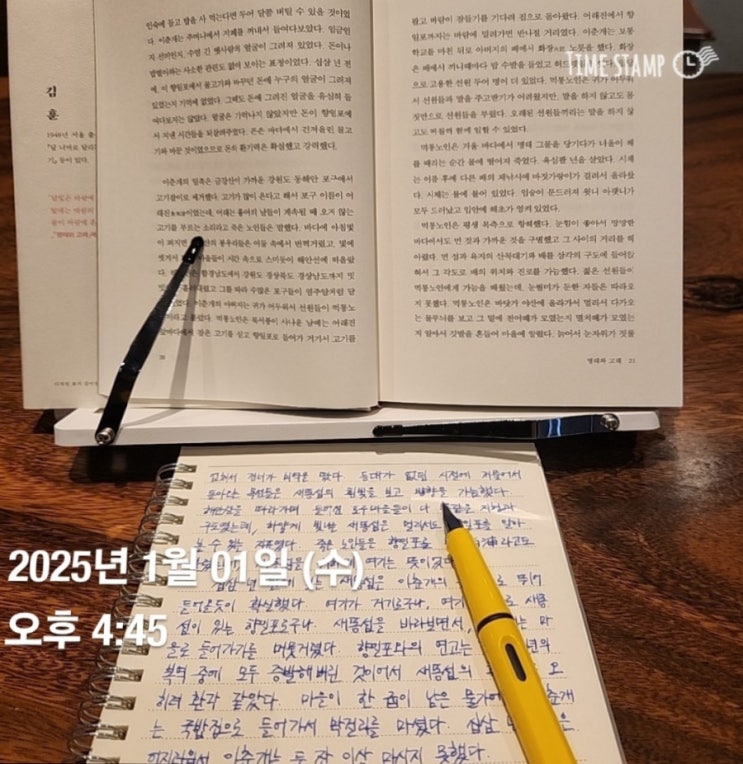 김훈
1948년 서울 출
민숙에 들고 밥을 사 먹는다면 두어 달쯤 버틸 수 있을 것이었
다. 이춘개는 주머니에서 지폐를 꺼내서 들여다보았다. 임금인
지 선비인지, 수염 긴 옛사람의 얼굴이 그려져 있었다. 돈이나
밥벌이라는 사소한 관련도 없어 보이는 표정이었다. 십삼 년 전
에, 이 향일포에서 물고기와 바꾸던 돈에 누구의 얼굴이 그려져
있었는지 기억에 없었다. 그때도 돈에 그려진 얼굴을 유심히 들
여다보지는 않았다. 얼굴은 기억나지 않았지만 돈이 향일포에
서 지낸 시간들을 되살려주었다. 돈은 바다에서 건져올린 물고
기와 바꾼 것이었으므로 돈의 환기력은 확실했고 강력했다.
이춘개의 일족은 금강산이 가까운 강원도 동해안 포구에서
고기잡이로 했다. 고기가 많이 온다고 해서 포구 이름이 어
래진이었는데, 어래는 흉어의 날들이 계속될 때 오지 않는
고기를 부르는 소리라고 죽은 노인들은 말했다. 바다에 아침빛
이 퍼지면 산의 봉우리들은 어둠 속에서 번쩍거렸고, 빛에
씻겨서 마을들이 시간 속으로 스미듯이 해안선에 떠올랐
다. 함경남도에서 강원도 경상북도 경상남도까지 잇
흘러내렸고 그를 따라 수많은 포구들이 염주알처럼 달
었다. 이춘개의 아버지는 귀가 어두워서 선원들이 먹통노
이라고 불렀다. 먹통노인은 북서풍이 사나운 날에는 어래진
앞바다에서 잡은 고기를 싣고 향일포로 들어가 거기서 고기를
20
팔고 바람이 잠들기를 기다려 집으로 돌아왔다. 어래진에서 향
일포까지는 바람에 밀려가면 반나절 거리였다. 이춘개는 보통
학교를 마친 뒤로 아버지의 배에서 화장 노릇을 했다. 화장
은 배에서 끼니때마다 밥 수발을 들었고
으로 고용한 선원 두어 명이 더 있었다. 먹통노인은 귀가 어두워
서 선원들과 말을 주고받기가 어려웠지만, 말을 하지 않고도 몸
짓만으로 선원들을 부렸다. 오래된 선원들끼리는 말을 하지 않
고도 며칠씩 함께 일할 수 있었다.
먹통노인은 겨울 바다에서 명태 그물을 당기다가 너울이 배
를 때리는 순간 물에 떨어져 죽었다. 육십팔 년을 살았다. 시체
는 이틀 후에 다른 배의 채낚시에 바짓가랑이가 걸려서 올라왔
다. 시체는 물에 불어 있었다. 입술이 문드러져 윗니 아랫니가
모두 드러났고 입안에 해초가 엉켜 있었다.
먹통노인은 평생 목측으로 항해했다. 눈힘이 좋아서 망망한
바다에서도 먼 것과 가까운 것을 구별했고 그 사이의 거리를 헤
아렸다. 먼 섬과 육지의 산꼭대기와 배를 삼각의 구도에 들여앉
혀서 그 각도로 배의 위치와 진로를 가늠했다. 젊은 선원들이
먹통노인에게 가늠을 배웠는데, 눈썰미가 둔한 자들은 따라오
지 못했다. 먹통노인은 바닷가 야산에 올라가서 멀리서 다가오
는 물무늬를 보고 그 밑에 전어떼가 모였는지 멸치떼가 모였는
지 알아서 깃발을 흔들어 마을에 알렸다. 늙어서 눈자위가 짓물
명태와 고래 21
TIME STAMP
돌아오는 목선들은 새똥섬의 흰빛을 보고 방향을 가늠했다.
해안선을 따라가며 들어선 포구마을들이 다
볼 수 있는 지표였다. 죽은 노인들은 향일포를
여기는 뜻이었다
새똥섬은 이춘개의
들어온 듯이 확실했다. 여기가 거기로구나, 여기
섬이 있는 향일포로구나. 새똥섬을 바라보면서,
을로 들어가기를 머뭇거렸다. 향일포와의 연고는
복역 중에 모두 증발해버린 것이어서 새똥섬의
히려 환각 같았다. 마을이 한 줌이 낮은 물가에
는 국밥집으로 들어가서 막걸리를 마셨다. 십삼
이춘개는 두 잔 이상 마시지 못했다.
2025년 1월 01일 (수)
오후 4:45